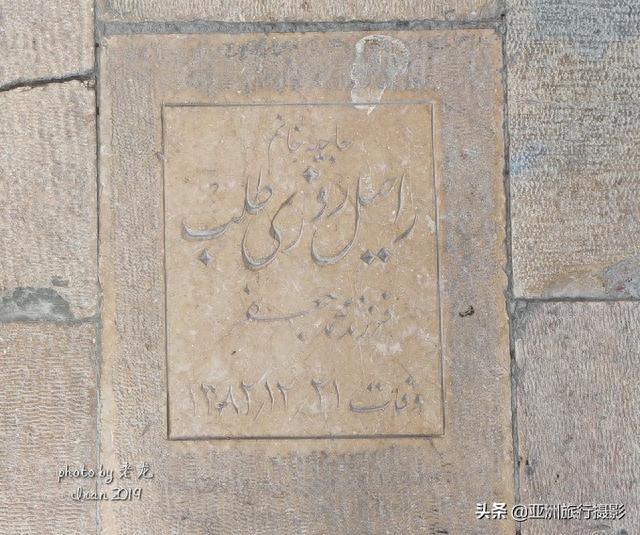 حاجیه خانم
راحیل روزی طلب
فرزند جعفر
وفات ۲۱/۱۲/۱۳۸۲
photo by 老龙
Iran 2019
头条 @亚洲旅行摄影